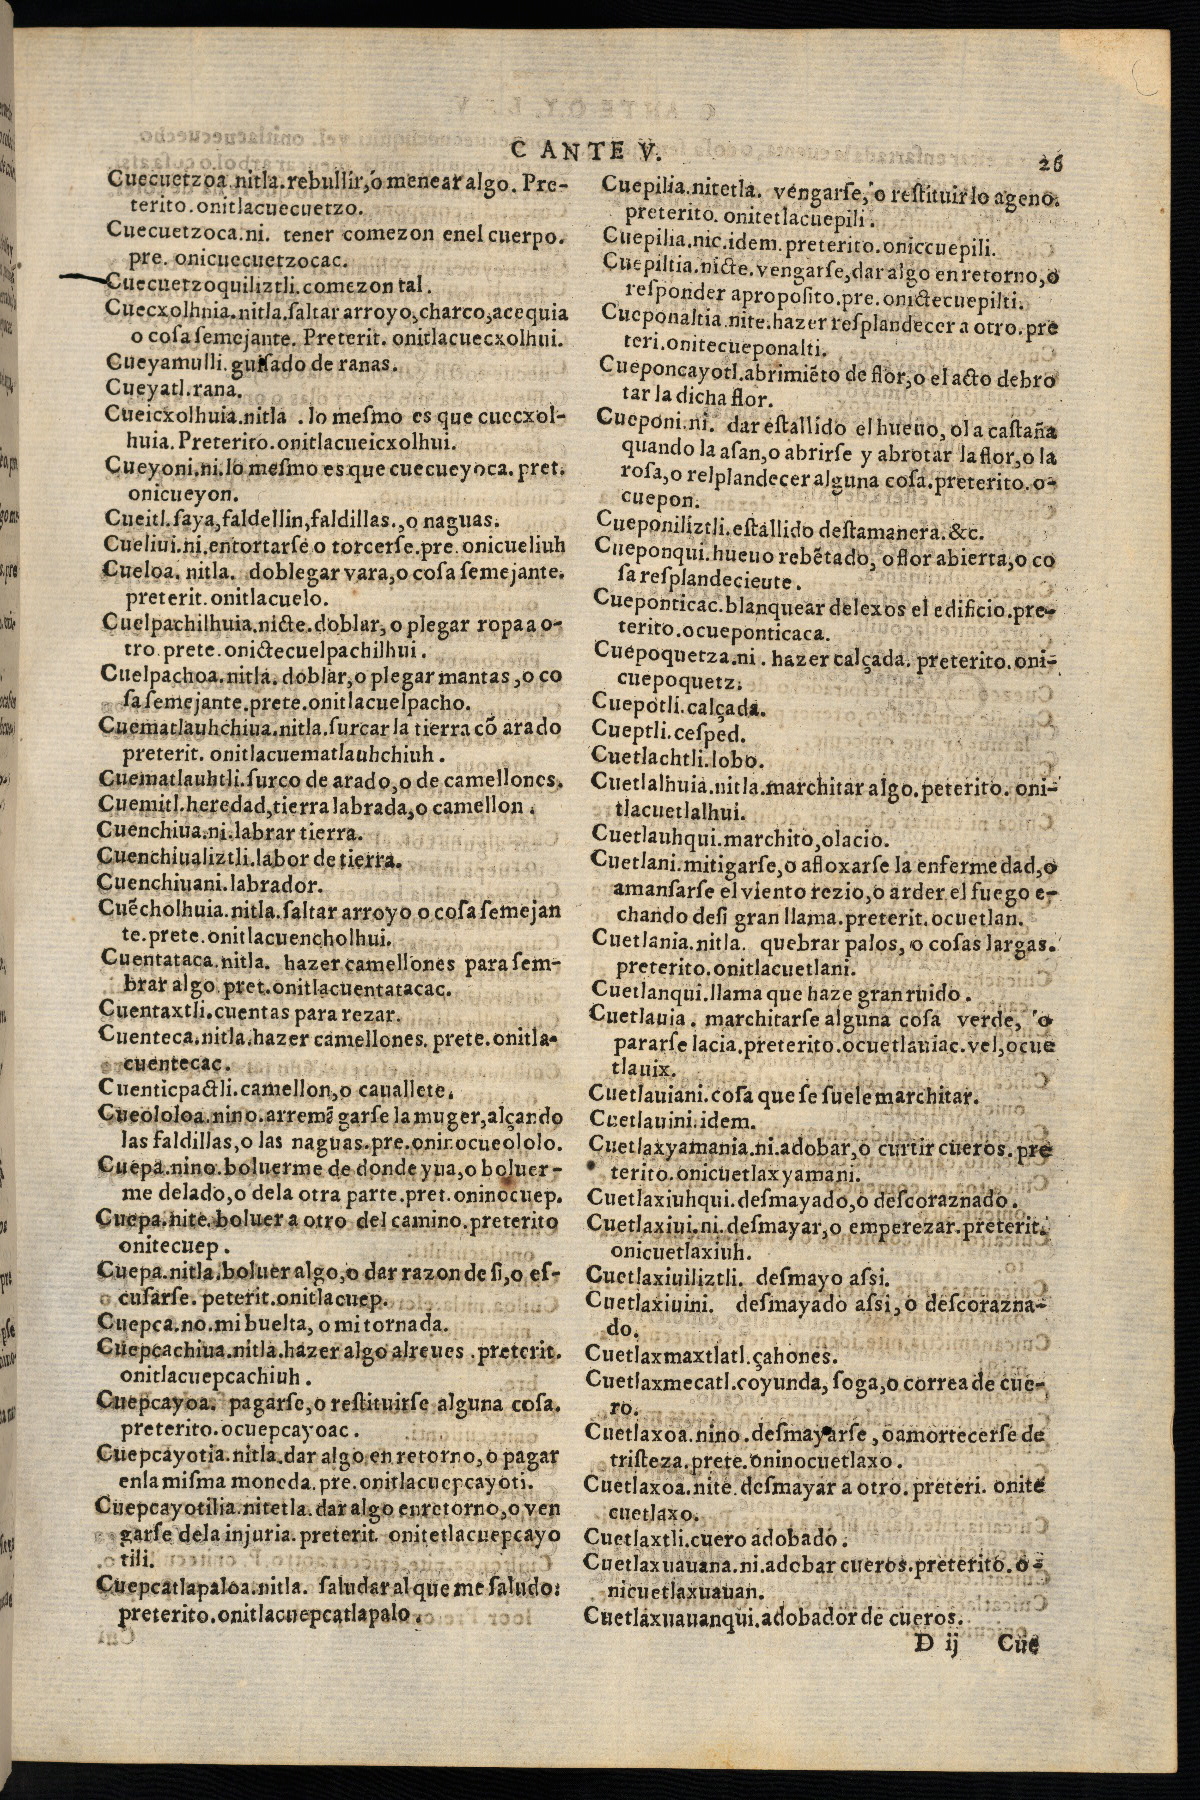 C ANTE V.
26
Cuecuetzoa.nitla.rebullir,o menear algo. Pre-
terito.onitlacuecuetzo.
Cuecuetzoca.ni. tener comezon enel cuerpo.
pre. onicuecuetzocac.
Cuecuetzoquiliztli.comezon tal.
Cuecxolhuia.nitla.saltar arroyo,charco,acequia
o cosa semejante. Preterit. onitlacuecxolhui.
Cueyamulli.guisado de ranas.
Cueyatl.rana.
Cueicxolhuia.nitla . lo mesmo es que cuecxol-
huia.Preterito.onitlacueicxolhui.
Cueyoni.ni.lo mesmo es que cuecueyoca. pret.
onicueyon.
Cueitl.saya,faldellin,faldillas.,o naguas.
Cueliui.ni.entortarse o torcerse.pre.onicueliuh
Cueloa.nitla. doblegar vara,o cosa semejante.
preterit.onitlacuelo.
Cuelpachilhuia.nicte.doblar,o plegar ropa a o-
tro.prete.onictecuelpachilhui.
Cuelpachoa.nitla.doblar,o plegar mantas,o co
sa semejante.prete.onitlacuelpacho.
Cuematlauhchiua.nitla.surcar la tierra cō arado
preterit. onitlacuematlauhchiuh.
Cuematlauhtli.surco de arado,o de camellones.
Cuemitl.heredad,tierra labrada,o camellon.
Cuenchiua.ni.labrar tierra.
Cuenchiualiztli.labor de tierra.
Cuenchiuani.labrador.
Cuēcholhuia.nitla.saltar arroyo o cosa semejan
te.prete.onitlacuencholhui.
Cuentataca.nitla. hazer camellones para sem-
brar algo.pret.onitlacuentatacac.
Cuentaxtli.cuentas para rezar.
Cuenteca.nitla.hazer camellones. prete.onitla-
cuentecac.
Cuenticpactli.camellon,o cauallete.
Cueololoa.nino.arremāgarse la muger,alçando
las faldillas,o las naguas.pre.oninocueololo.
Cuepa.nino.boluerme de donde yua,o boluer-
me delado,o dela otra parte.pret.oninocuep.
Cuepa.nite.boluer a otro del camino.preterito
onitecuep.
Cuepa.nitla.boluer algo,o dar razon de si,o es-
cusarse. peterit.onitlacuep.
Cuepca.no.mi buelta,o mi tornada.
Cuepcachiua.nitla.hazer algo alreues.preterit.
onitlacuepcachiuh.
Cuepcayoa. pagarse,o restituirse alguna cosa.
preterito.ocuepcayoac.
Cuepcayotia.nitla.dar algo en retorno,o pagar
enla misma moneda.pre.onitlacuepcayoti.
Cuepcayotilia.nitetla.dar algo en retorno,o ven
garse dela injuria.preterit. onitetlacuepcayo
tili.
Cuepcatlapaloa.nitla. saludar al que me saludo:
preterito.onitlacuepcatlapalo.
Cuepilia.nitetla. vengarse,o restituir lo ageno.
preterito. onitetlacuepili.
Cuepilia.nic.idem.preterito.oniccuepili.
Cuepiltia.nicte.vengarse,dar algo en retorno,o
responder aproposito.pre.onictecuepilti.
Cueponaltia.nite.hazer resplandecer a otro.pre
teri.onitecueponalti.
Cueponcayotl.abrimiēto de flor,o el acto debro
tar la dicha flor.
Cueponi.ni. dar estallido el hueuo, ol a castaña
quando la asan,o abrirse y abrotar la flor,o la
rosa,o relplandecer alguna cosa.preterito.o-
cuepon.
Cueponiliztli.estallido destamanera.&c.
Cueponqui.hueuo rebētado, o flor abierta,o co
sa resplandeciente.
Cueponticac.blanquear delexos el edificio.pre-
terito.ocueponticaca.
Cuepoquetza.ni. hazer calçada. preterito.oni-
cuepoquetz.
Cuepotli.calçada.
Cueptli.cesped.
Cuetlachtli.lobo.
Cuetlalhuia.nitla.marchitar algo.peterito.oni-
tlacuetlalhui.
Cuetlauhqui.marchito,olacio.
Cuetlani.mitigarse,o afloxarse la enfermedad,o
amansarse el viento rezio,o arder el fuego e-
chando desi gran llama.preterit.ocuetlan.
Cuetlania.nitla. quebrar palos, o cosas largas.
preterito.onitlacuetlani.
Cuetlanqui.llama que haze gran ruido.
Cuetlauia. marchitarse alguna cosa verde, o
pararse lacia.preterito.ocuetlauiac.vel,ocue
tlauix.
Cuetlauiani.cosa que se suele marchitar.
Cuetlauini.idem.
Cuetlaxyamania.ni.adobar,o curtir cueros.pre
terito.onicuetlaxyamani.
Cuetlaxiuhqui.desmayado,o descoraznado.
Cuetlaxiui.ni.desmayar,o emperezar.preterit.
onicuetlaxiuh.
Cuetlaxiuiliztli. desmayo assi.
Cuetlaxiuini. desmayado assi,o descorazna-
do.
Cuetlaxmaxtlatl.çahones.
Cuetlaxmecatl.coyunda,soga,o correa de cue-
ro.
Cuetlaxoa.nino.desmayarse,oamortecerse de
tristeza.prete.oninocuetlaxo.
Cuetlaxoa.nite.desmayar a otro.preteri. onite
cuetlaxo.
Cuetlaxtli.cuero adobado.
Cuetlaxuauana.ni.adobar cueros.preterito.o-
nicuetlaxuauan.
Cuetlaxuauanqui.adobador de cueros.
D ij Cue